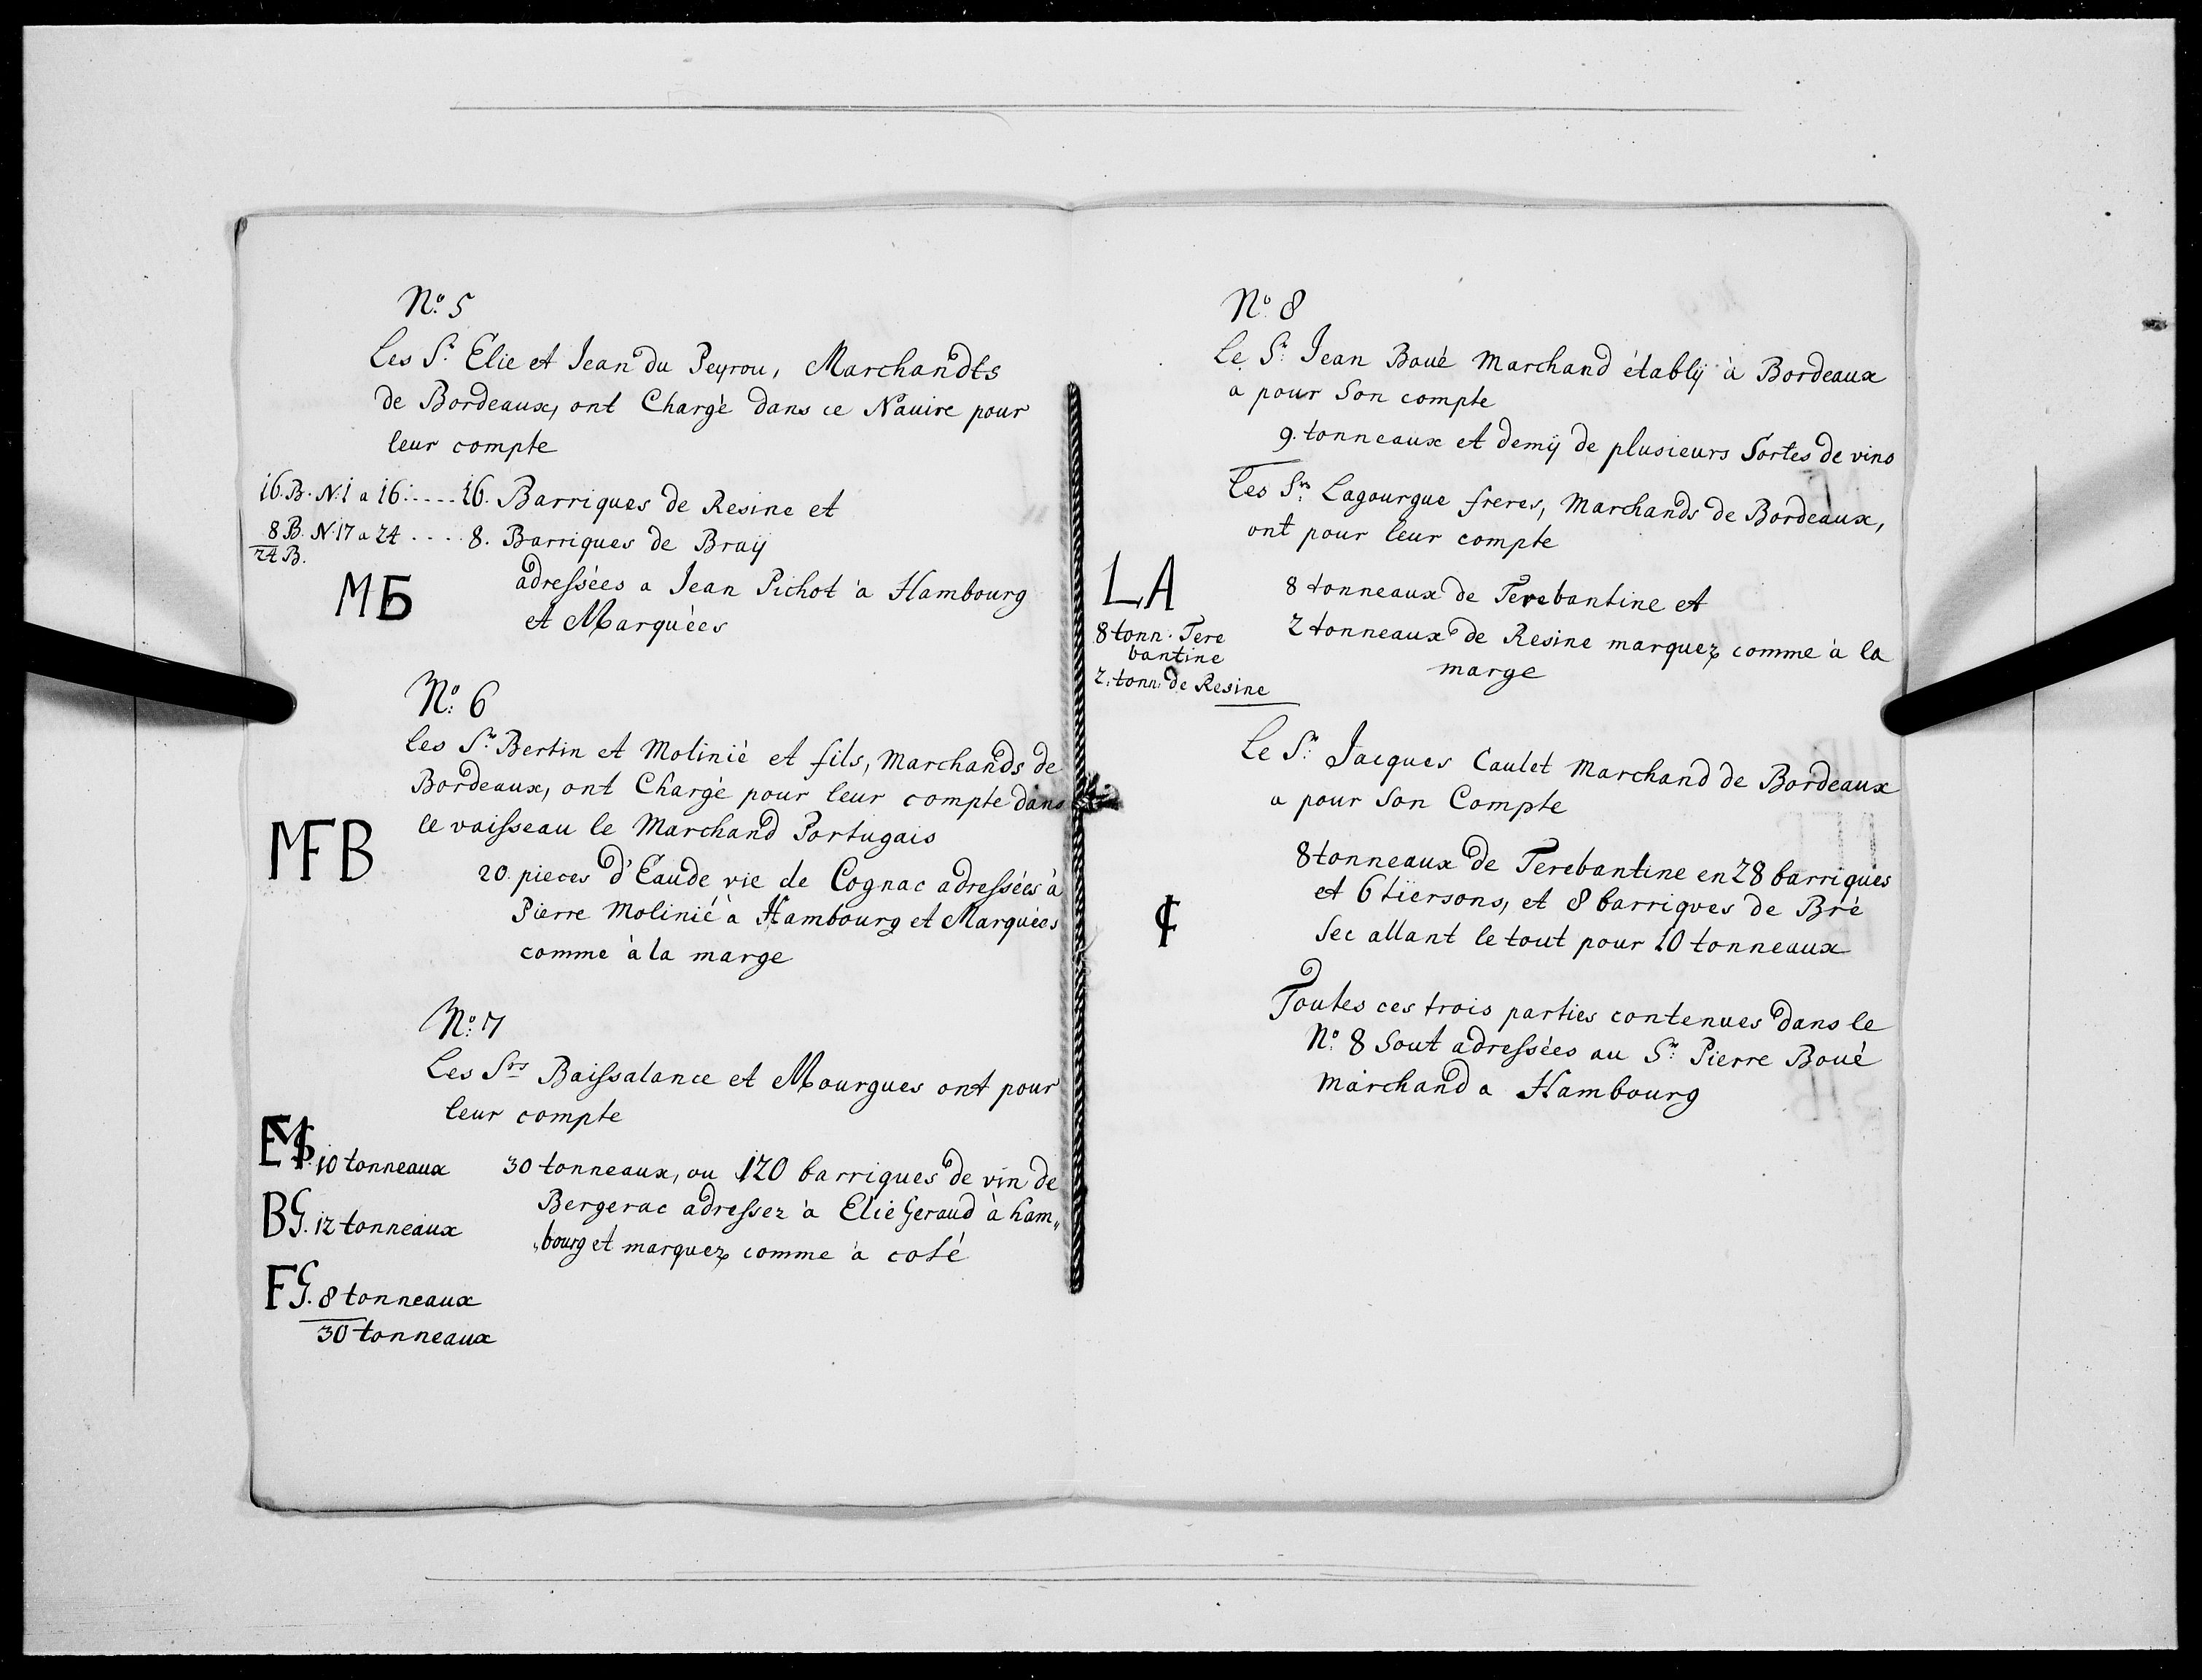 Nº. 5
Les Sr. Elie et Jean du Peyrou, Marchandts
de Bordeaux, ont Chargé dans ce Nauire pour
leur compte
16. B. N. 1 a 16 ..... 16. Barriques de Resine et
8 B. N. 17 a 24 .... 8. Barriques de Braÿ
24 B.
adressées a Jean Pichot à Hambourg
MB
et Marquées
Nº. 6
les Srs. Bertin et Molinié et fils, Marchands de
Bordeaux, ont Chargé pour leur compte dans
le vaisseau le Marchand Portugais
MFB
20. pieces d'Eaude vie de Cognac adressées à
Pierre Molinié à Hambourg et Marquées
comme à la marge
Nº. 7
Les Srs Baissalance et Mourgues ont pour
leur compte
10 tonneaux 30 tonneaux, ou 120 barriques de vin de
BG. 12 tonneaux Bergerac adressez à Elie Geraud à ham„
„bourg et marquez comme à coté
FG. 8 tonneaux
30 tonneaux
Nº 8
Le Sr. Jean Boué Marchand établÿ à Bordeaux
a pour Son compte
9. tonneaux et demÿ de plusieurs Sortes de vins
Les Srs. Lagourgue freres, Marchands de Bordeaux,
ont pour leur compte
LA
8 tonneaux de Terebantine et
8 tonn. Tere
bantine
2 tonneaux de Resine marquez comme à la
marge
2. tonn. de Resine
Le Sr. Jacques Caulet Marchand de Bordeaux
a pour Son Compte
8 tonneaux de Terebantine en 28 barriques
et 6 tiersons, et 8 barriques de Bré
Sec allant le tout pour 10 tonneaux
Toutes ces trois parties contenues dans le
Nº. 8 Sout adressées au Sr. Pierre Boué
marchand a Hambourg